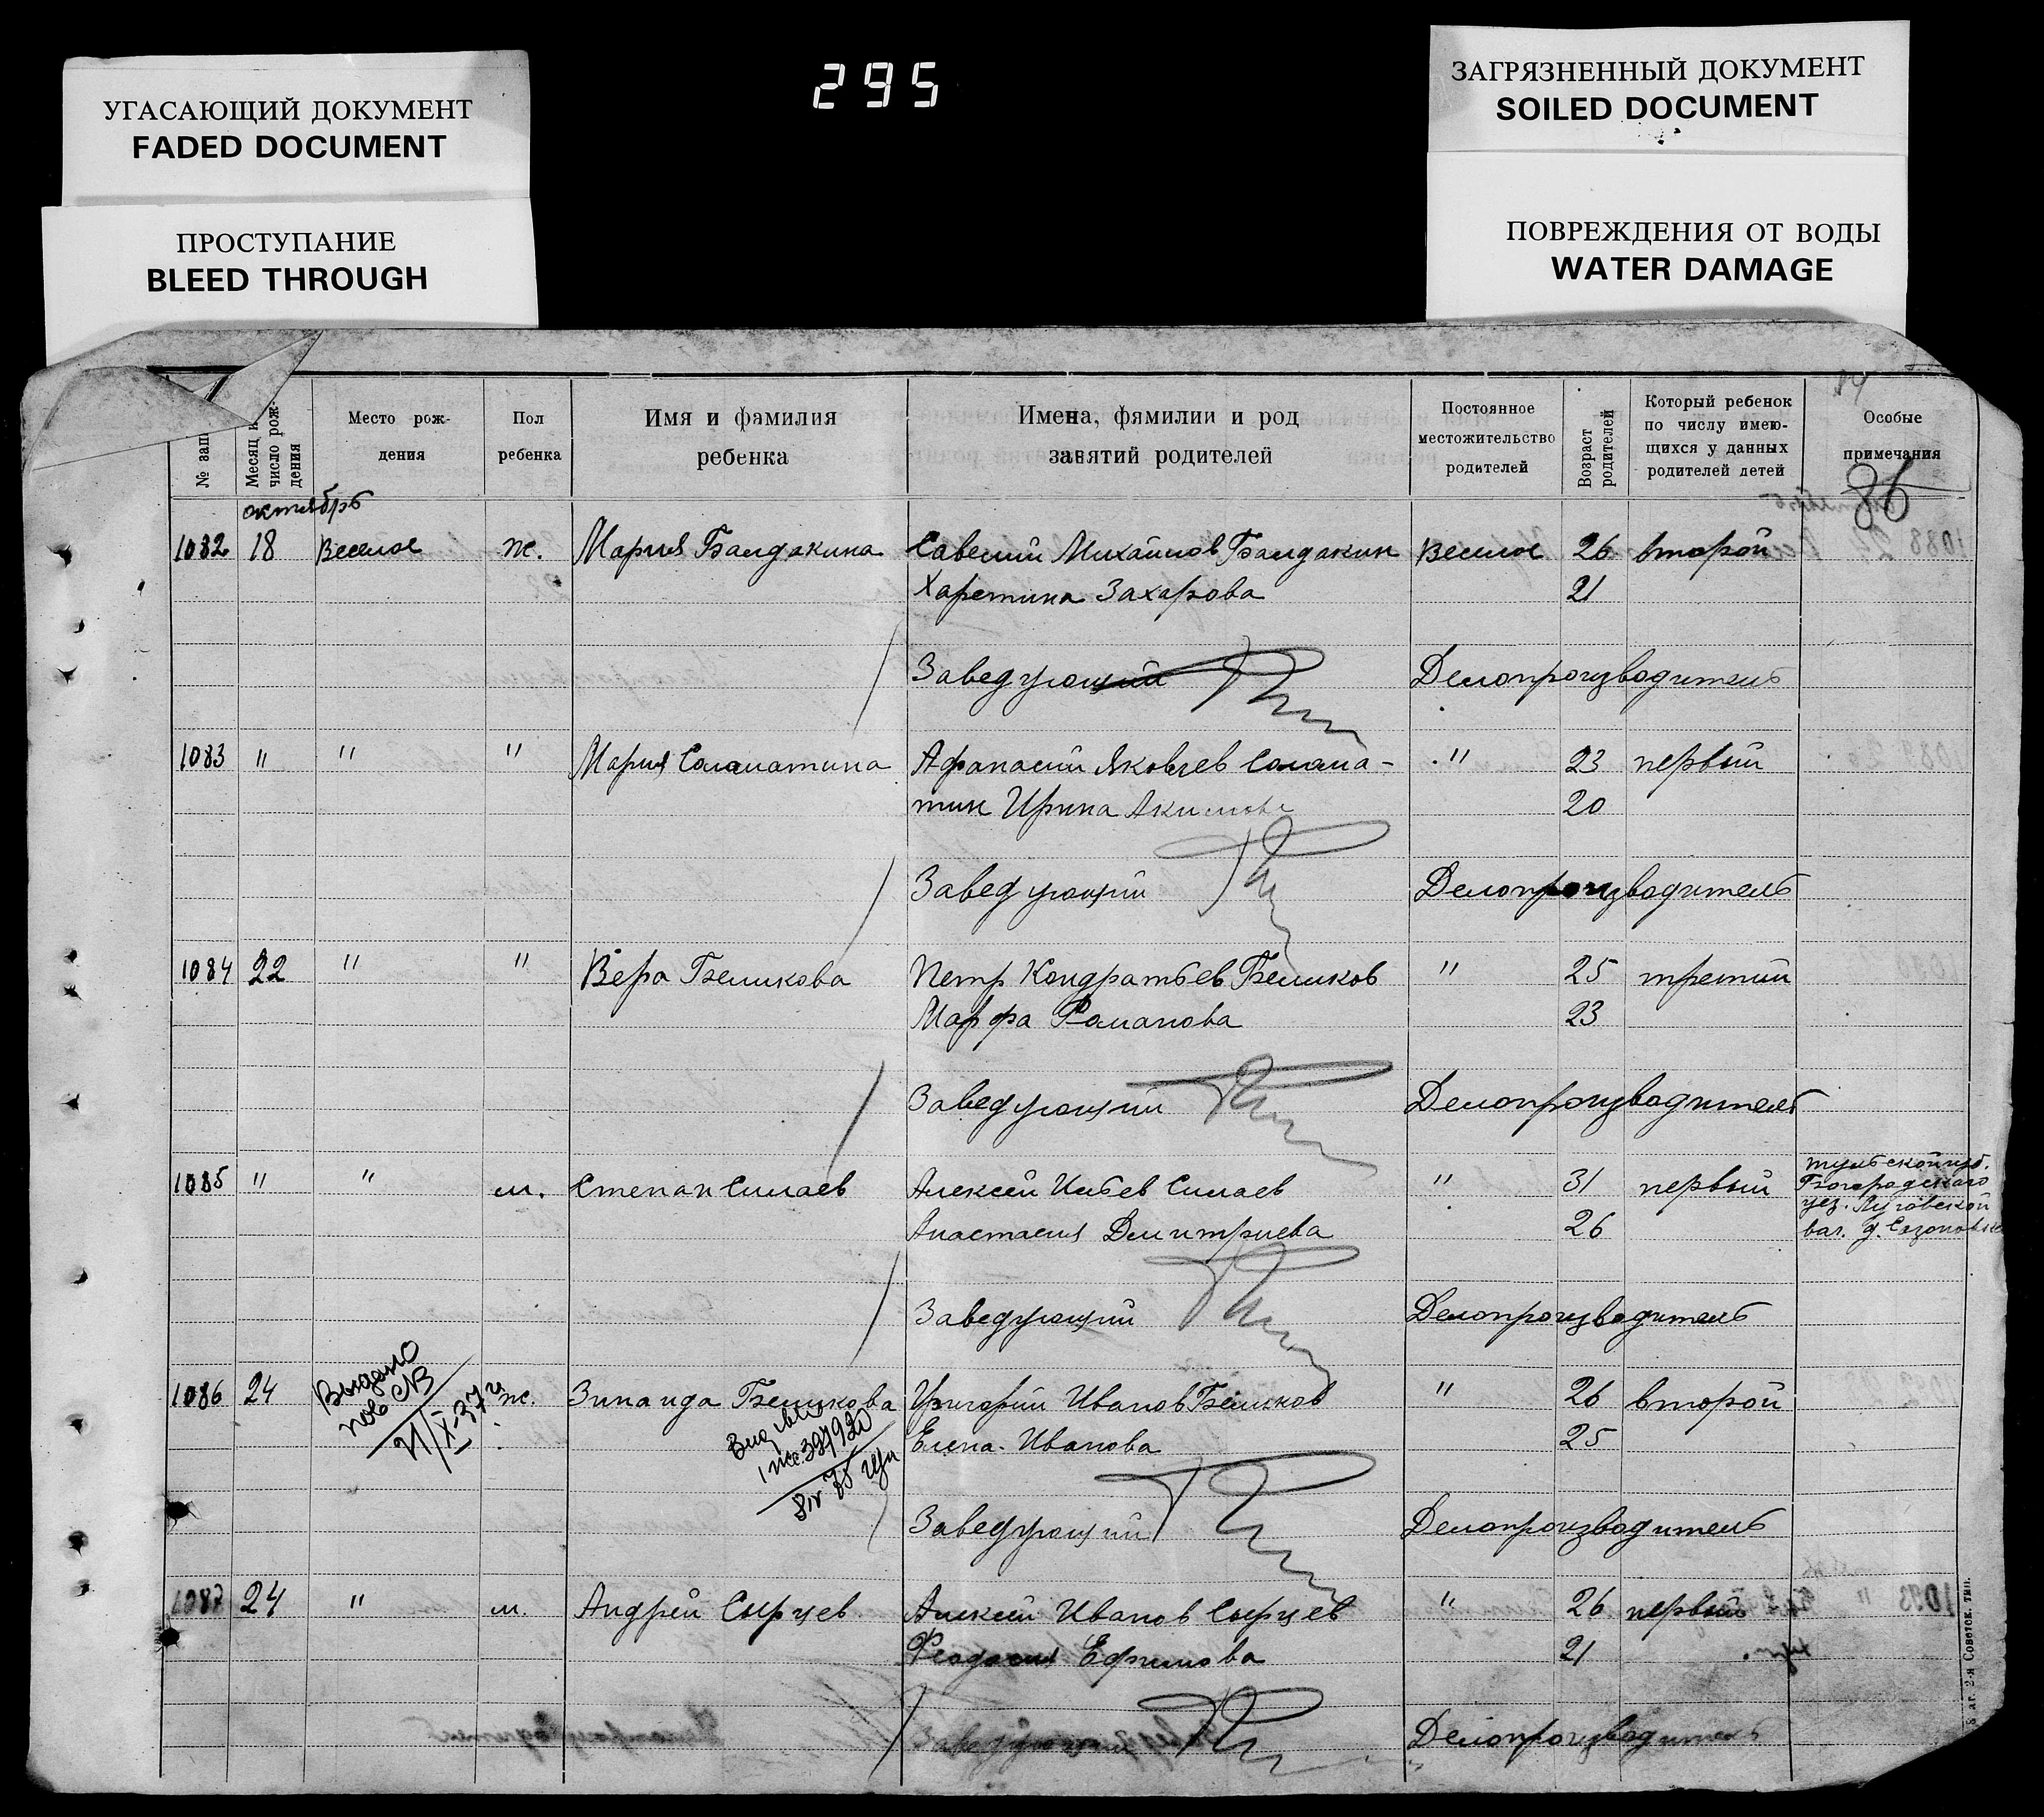 УГАСАЮЩИЙ ДОКУМЕНТ
FADED DOCUMENT
ПРОСТУПАНИЕ
BLEED THROUGH
295
ЗАГРЯЗНЕННЫЙ ДОКУМЕНТ
SOILED DOCUMENT
ПОВРЕЖДЕНИЯ ОТ ВОДЫ
WATER DAMAGE
№ зап
Месяц и число рож- дения
Место рож- дения
Пол ребенка
Имя и фамилия ребенка
Имена, фямилии и род занятий родителей
Постоянное местожительство родителей
Возраст родителей
Который ребенок по числу имею- щихся у данных родителей детей
Особые примечания
86
октябрь
1082 18 Веселое ж. Мария Балдакина Савелий Михайлов Балдакин Веселое 26 второй
Харетина Захарова 21
Заведующий Делопроизводитель
1083 " " " Мария Саламатина Афанасий Яковлев Салама- " 23 первый
тин Ирина Акимова 20
Заведующий Делопроизводитель
1084 22 " " Вера Беликова Петр Кондратьев Беликов " 25 третий
Марфа Романова 23
Заведующий Делопроизводитель
1085 " " м. Степан Силаев Алексей Ильев Силаев " 31 первый
Анастасия Дмитриева 26
тульской губ.
Богородскаго
уез. Луговской
вол. д.
Заведующий Делопроизводитель
1086 24 ж. Зинаида Беликова Григорий Иванов Беликов " 26 второй
Елена Иванова 25
Выдано
пов СВ
11/X-37 г
397920
Заведующий Делопроизводитель
1087 24 " м. Андрей Сырцев Алексей Иванов Сырцев " 26 первый
Феодосия Ефимова 21
Заведующий Делопроизводитель
2-я Советск. тип.